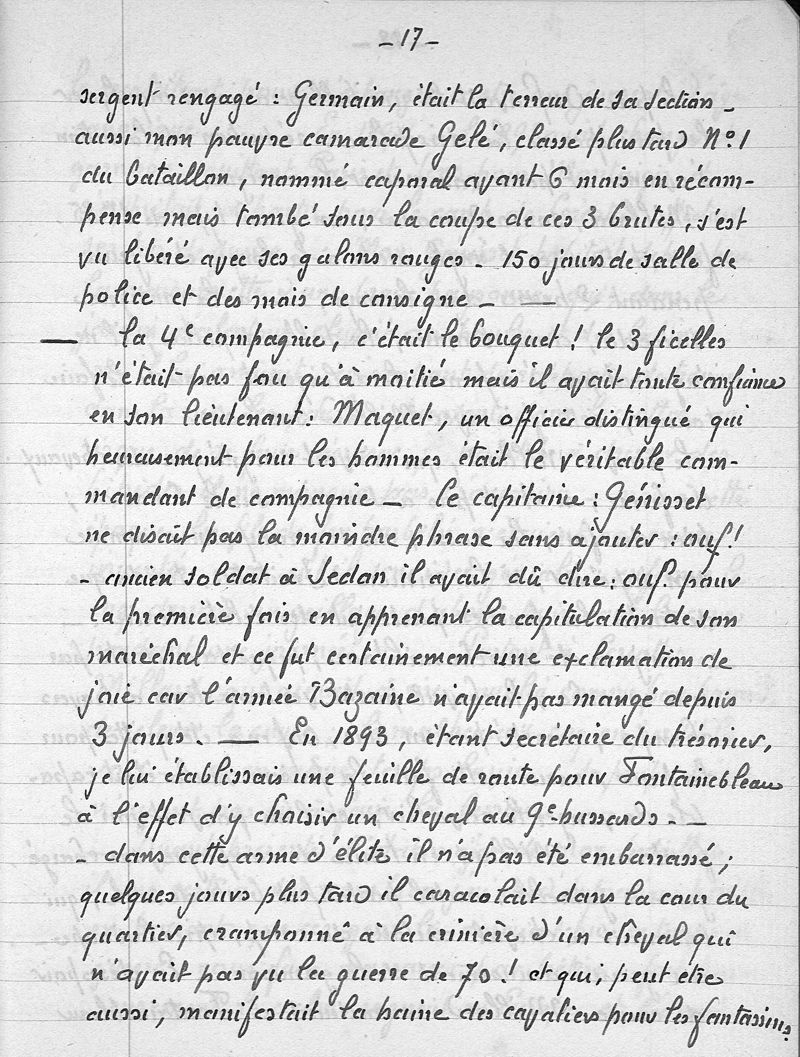 -17-
sergent rengagé : Germain, était la terreur de sa section -
aussi mon pauvre camarade Gelé, classé plus tard N° 1
du bataillon, nommé caporal avant 6 mois en récom-
pense mais tombé sous la coupe de ces 3 brutes, s'est
vu libéré avec ses galons rouges - 150 jours de salle de
police et des mois de consigne - —
— la 4e compagnie, c'était le bouquet ! le 3 ficelles
n'était pas fou qu'à moitié mais il avait toute confiance
en son lieutenant : Maquet, un officier distingué qui
heureusement pour les hommes était le véritable com-
mandant de compagnie - Ce capitaine : Génisset
ne disait pas la moindre phrase sans ajouter : ouf !
- ancien soldat à Sedan il avait dû dire : ouf. pour
la première fois en apprenant la capitulation de son
maréchal et ce fut certainement une exclamation de
joie car l'armée Bazaine n'avait pas mangé depuis
3 jours. — En 1893, étant secrétaire du trésorier,
je lui établissais une feuille de route pour Fontainebleau
à l'effet d'y choisir un cheval au 9e hussards - —
- dans cette arme d'élite il n'a pas été embarrassé ;
quelques jours plus tard il caracolait dans la cour du
quartier, cramponné à la crinière d'un cheval qui
n'avait pas vu la guerre de 70 ! et qui, peut etre
aussi, manifestait la haine des cavaliers pour les fantassins.